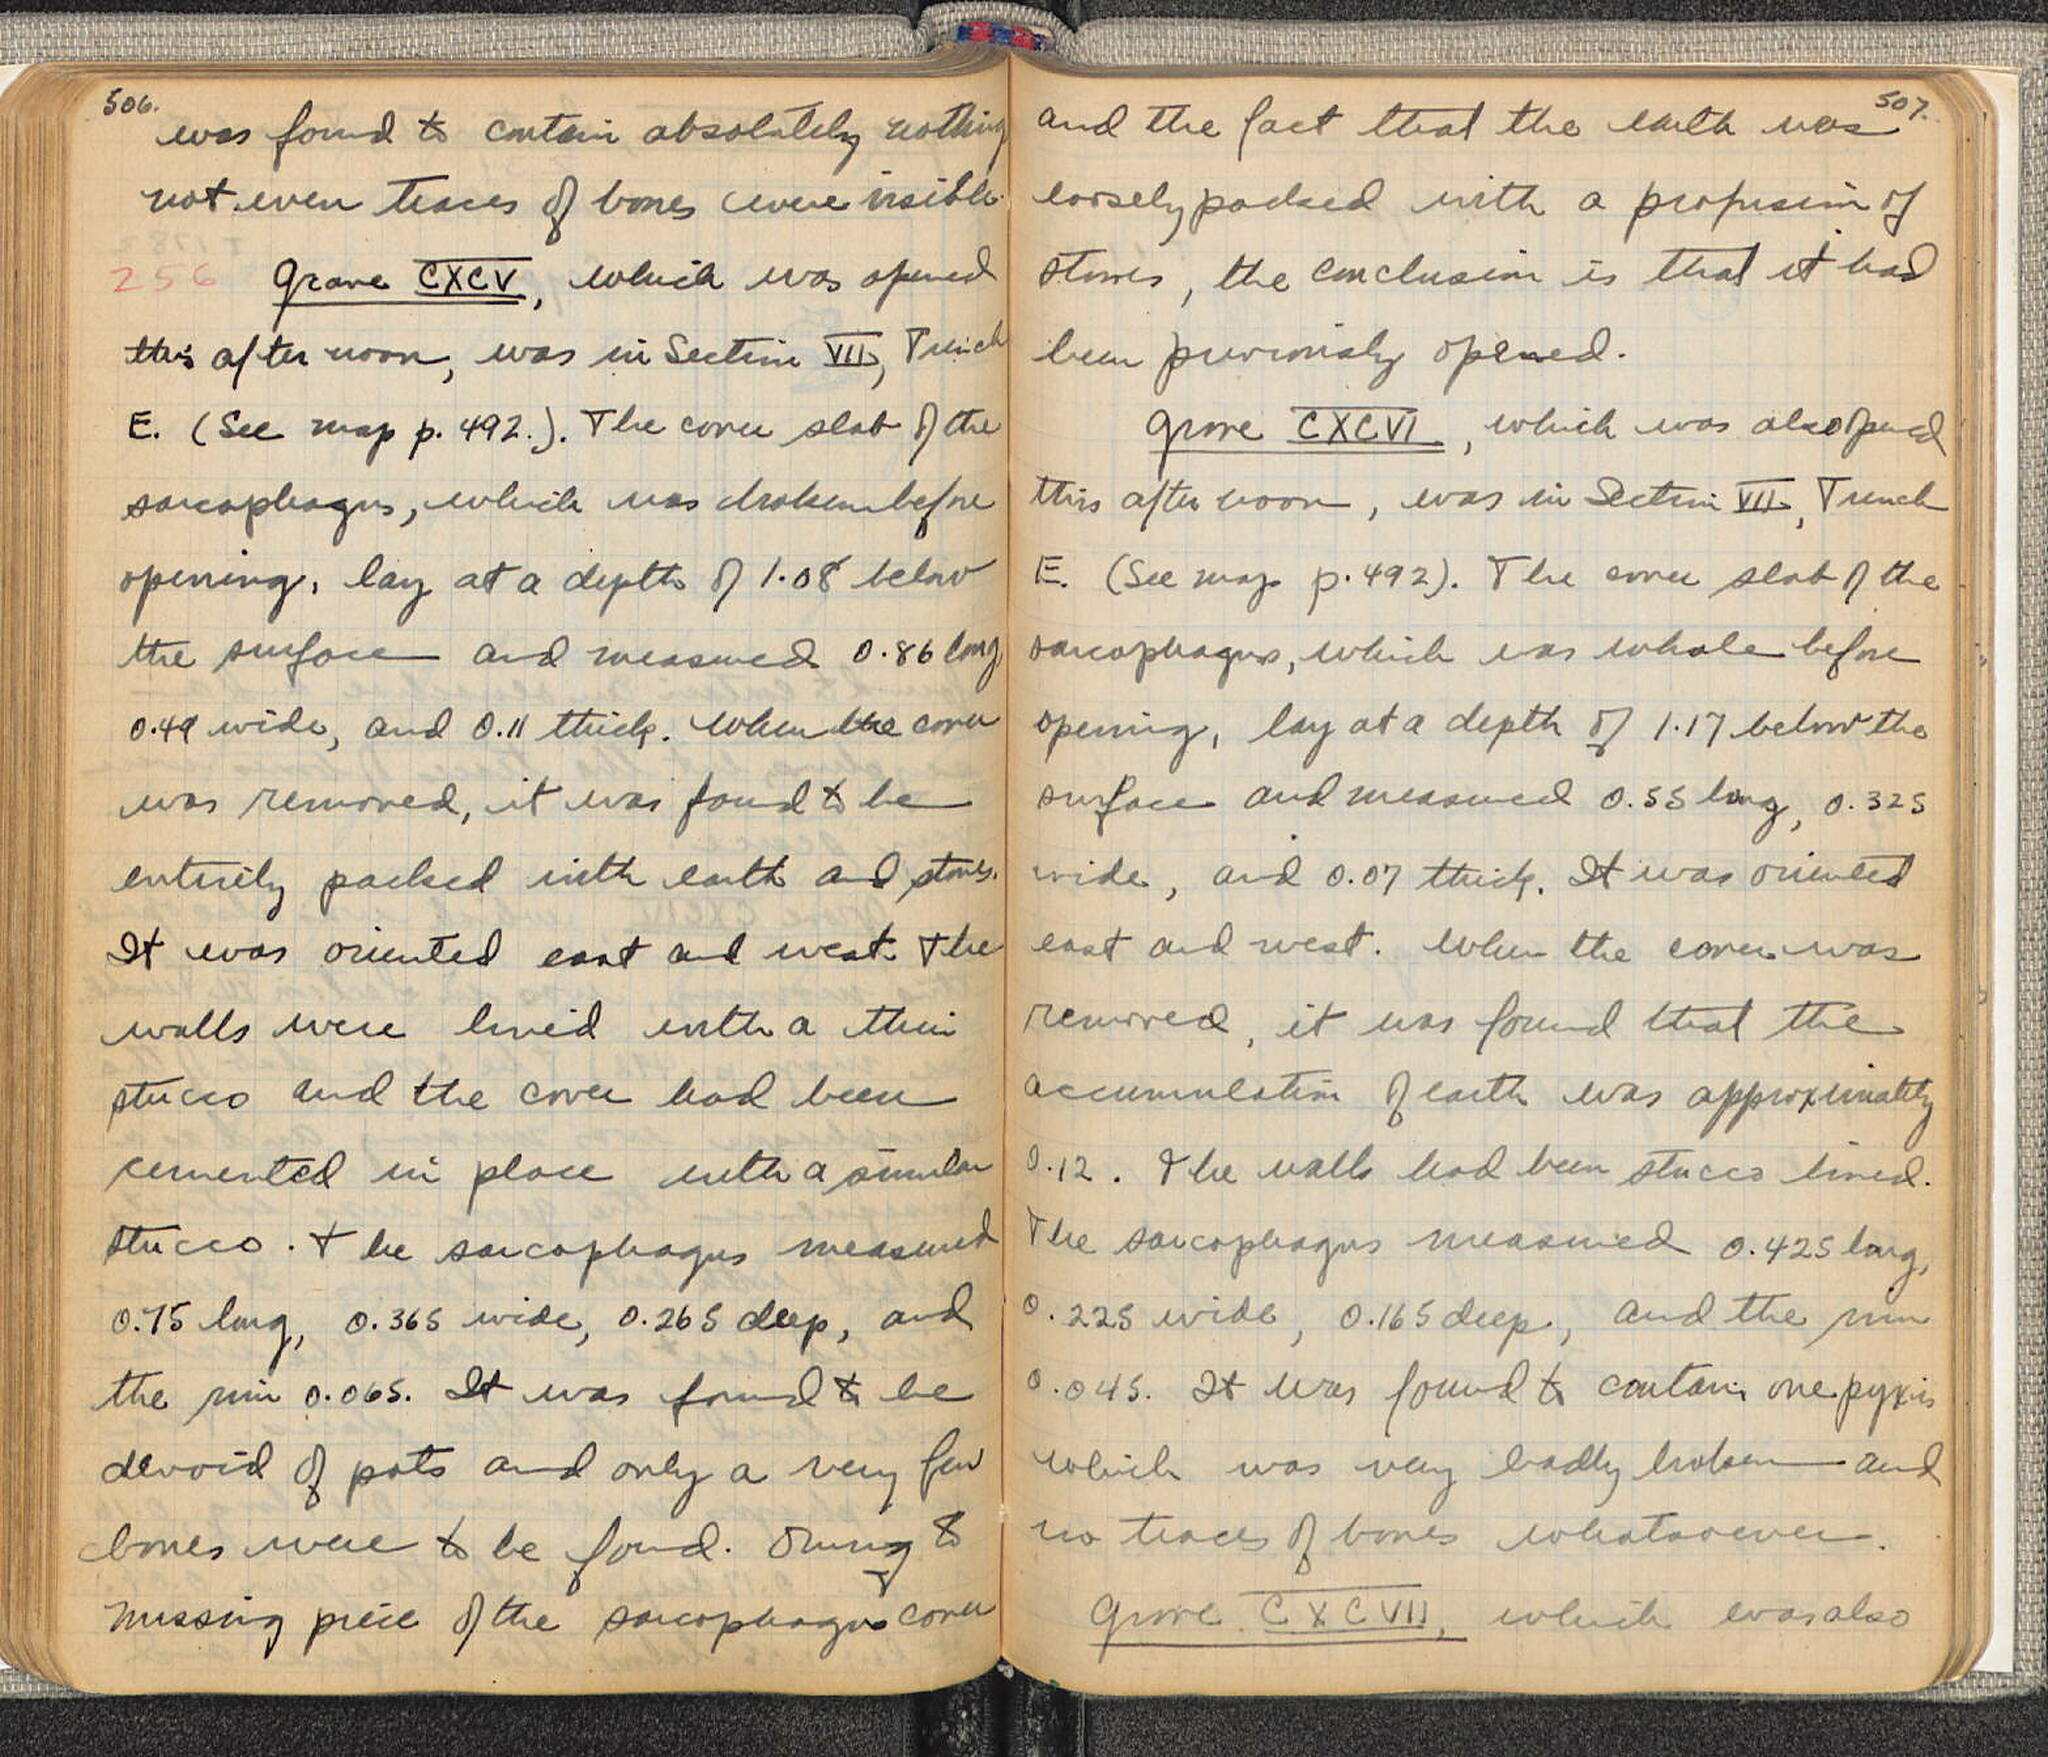 506.
was found to contain absolutely nothing
not even traces of bones were visible.
256 Grave CXCV, which was opened
this afternoon, was in Section VII, Trench
E. (See map p. 492.). The cover slab of the
sarcophagus, which was broken before
opening, lay at a depth of 1.08 below
the surface and measured 0.86 long,
0.49 wide, and 0.11 thick. When the cover
was removed, it was found to be
entirely packed with earth and stones.
It was oriented east and west. The
walls were lined with a thin
stucco and the cover had been
cemented in place with a similar
stucco. The sarcophagus measured
0.75 long, 0.365 wide, 0.265 deep, and
the rim 0.065. It was found to be
devoid of pots and only a very few
bones were to be found. Owing to
missing piece of the sarcophagus cover
507.
and the fact that the earth was
loosely packed with a profusion of
stones, the conclusion is that it had
been previously opened.
Grave CXCVI, which was also opened
this afternoon, was in Section VII, Trench
E. (See map p. 492). The cover slab of the
sarcophagus, which was whole before
opening, lay at a depth of 1.17 below the
surface and measured 0.55 long, 0.325
wide, and 0.07 thick. It was oriented
east and west. When the cover was
removed, it was found that the
accumulation of earth was approximately
0.12. The walls had been stucco lined.
The sarcophagus measured 0.425 long,
0.225 wide, 0.165 deep, and the rim
0.045. It was found to contain one pyxis
which was very badly broken and
no traces of bones whatsoever.
Grave CXCVII, which was also